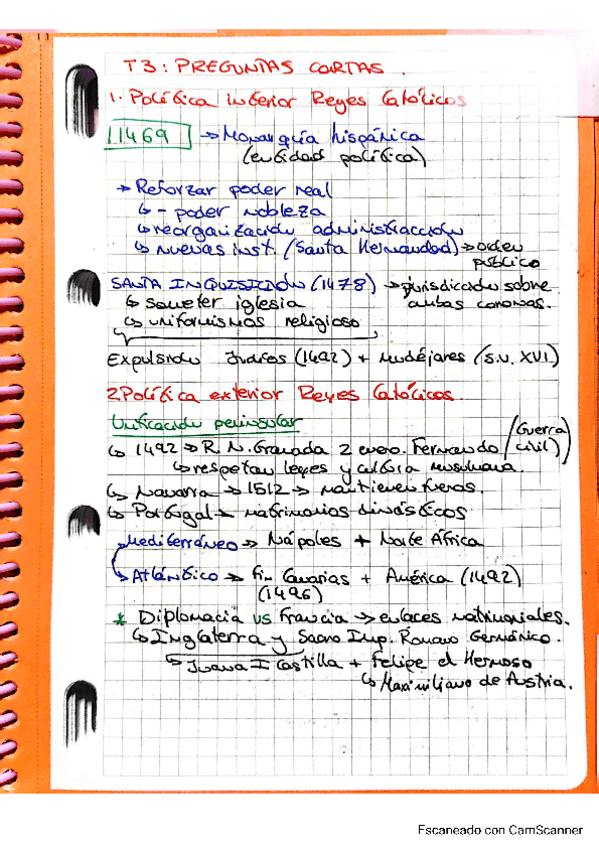 T3: PREGUNTAS CORTAS.
1. Política interior Reyes Católicos
1469 → Monarquía hispánica
(entidad política)
→ Reforzar poder real
↳ - poder nobleza
↳ reorganización administracción
↳ nuevas inst. (Santa Hermandad) → orden
público
SANTA INQUISICIÓN (1478) → jurisdicción sobre
↳ someter iglesia ambas coronas.
↳ uniformismos religioso
Expulsando Judíos (1492) + mudéjares (s.V. XVI)
2. Política exterior Reyes Católicos.
Unificación peninsular
↳ 1492 → R. N. Granada 2 enero. Fernando (Guerra
civil)
↳ respetan leyes y cultura musulmana.
↳ Navarra → 1512 → mantienen fueros.
↳ Portugal → matrimonios dinásticos
Mediterráneo → Nápoles + Norte África
↳ Atlántico → fin Canarias + América (1492)
(1496)
* Diplomacia vs Francia → enlaces matrimoniales.
↳ Inglaterra y Sacro Imp. Romano Germánico.
↳ Juana I Castilla + Felipe el Hermoso
↳ Maximiliano de Austria.
Escaneado con CamScanner